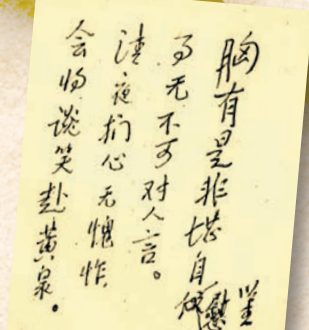 胸有是非堪自
事无不可对人言。
清夜扪心无愧怍
会将谈笑赴黄泉。